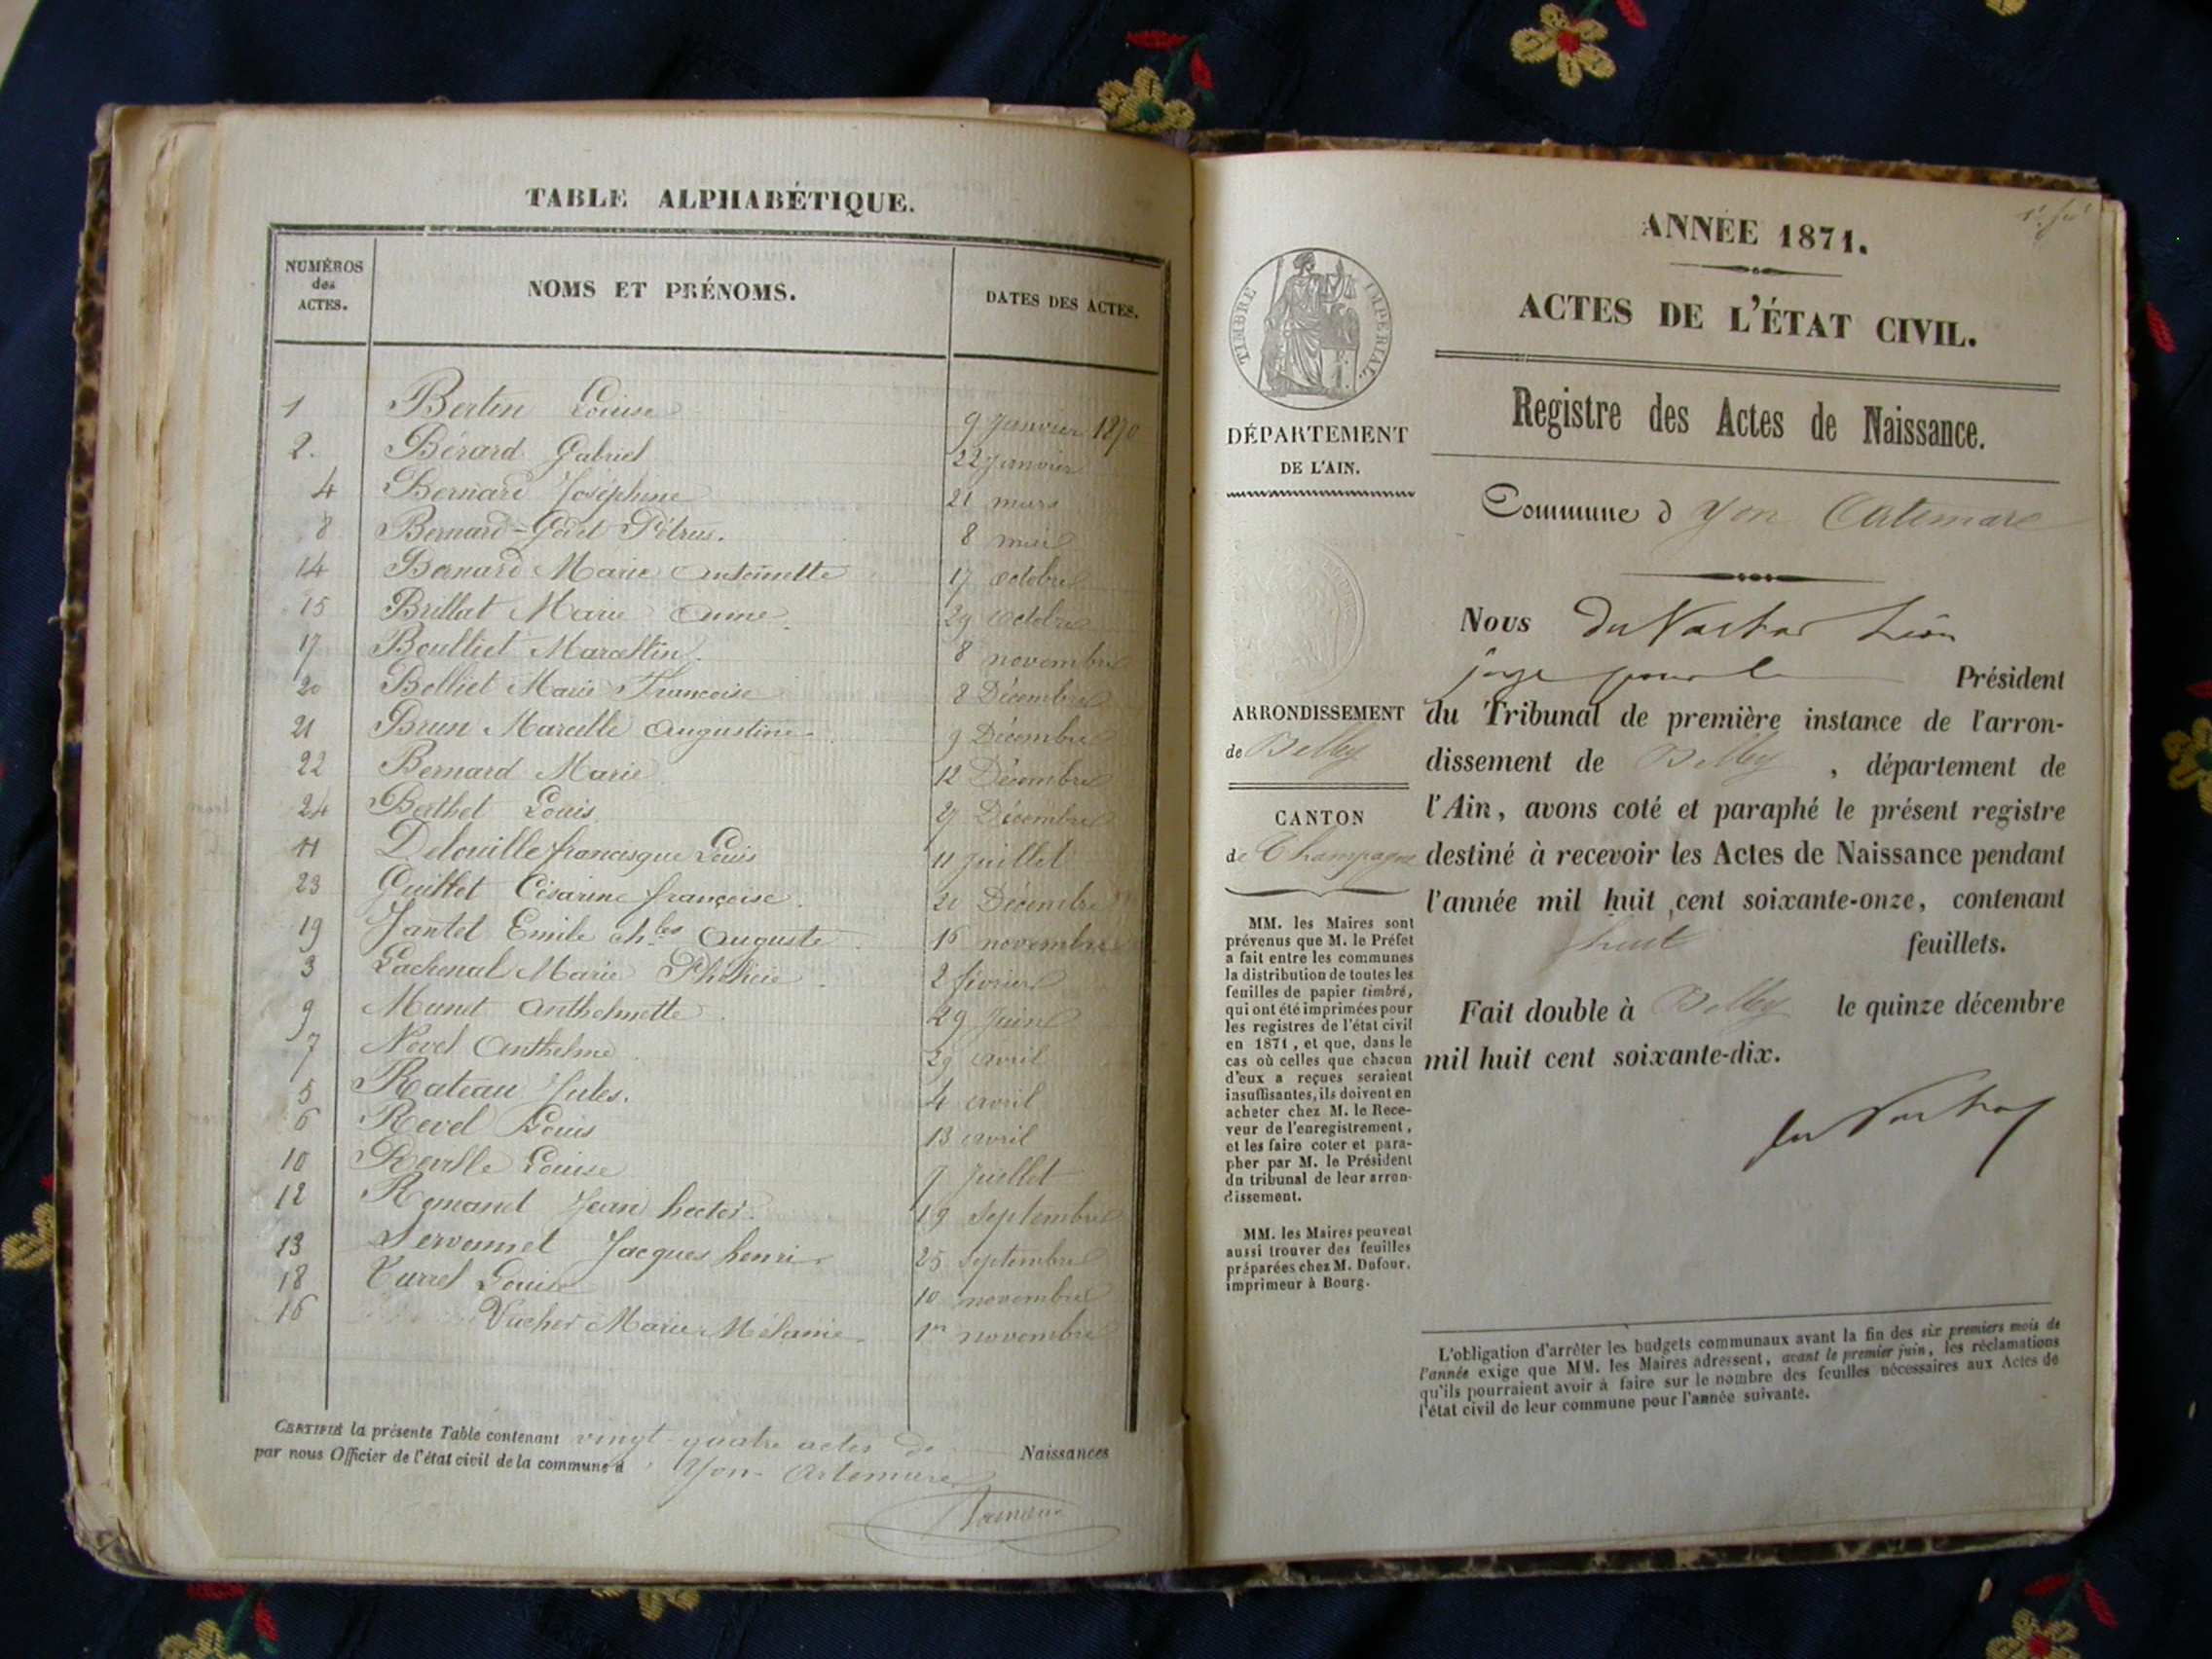 TABLE ALPHABÉTIQUE.
NUMÉROS des ACTES.
NOMS ET PRÉNOMS.
DATES DES ACTES.
1 Bertin Louise 9 Janvier 1870
2. Bérard Gabriel 22 Janvier
4 Bernard Joséphine 21 mars
8 Bernard=Godet Pétrus. 8 mai
14 Bernard Marie Antoinette 17 octobre
15 Brillat Marie Anne. 29 octobre
17 Boulliet Marcellin. 8 novembre
20 Bolliet Marie Francoise 8 Décembre
21 Brun Marcelle Augustine 9 Décembre
22 Bernard Marie 12 Décembre
24 Berthet Louis 27 Décembre
11 Delouille francisque Louis 11 Juillet
23 Guillet Césarine françoise. 21 Décembre
19 Jantet Emile chles Auguste. 16 novembre
3 Lachenal Marie 2 février
9 Munet Anthelmette. 29 Juin
7 Novel Anthelme. 29 avril
5 Rateau Jules. 4 avril
6 Revel Louis 13 avril
10 Louise 9 Juillet
12 Romanet Jean hector. 19 Septembre
13 Servonnet Jacques henri. 25 Septembre
18 Turrel Louise 10 novembre
16 Vacher Marie Mélanie. 1er novembre
CERTIFIÉ la présente Table contenant vingt-quatre actes de Naissances
par nous Officier de l'état civil de la commune d'Yon-Artemare
ANNÉE 1871.
ACTES DE L'ÉTAT CIVIL.
Registre des Actes de Naissance.
Commune d Yon Artemare
TIMBRE IMPÉRIAL.
DÉPARTEMENT
DE L'AIN.
ARRONDISSEMENT
de Belley
CANTON
de Champagne
MM. les Maires sont
prévenus que M. le Préfet
a fait entre les communes
la distribution de toutes les
feuilles de papier timbré,
qui ont été imprimées pour
les registres de l'état civil
en 1871, et que, dans le
cas où celles que chacun
d'eux a reçues seraient
insuffisantes, ils doivent en
acheter chez M. le Rece-
veur de l'enregistrement,
et les faire coter et para-
pher par M. le Président
du tribunal de leur arron-
dissement.
MM. les Maires peuvent
aussi trouver des feuilles
préparées chez M. Dufour,
imprimeur à Bourg.
Nous Léon
juge pour le Président
du Tribunal de première instance de l'arron-
dissement de Belley, département de
l'Ain, avons coté et paraphé le présent registre
destiné à recevoir les Actes de Naissance pendant
l'année mil huit cent soixante-onze, contenant
huit feuillets.
Fait double à Belley le quinze décembre
mil huit cent soixante-dix.
L'obligation d'arrêter les budgets communaux avant la fin des six premiers mois de
l'année exige que MM. les Maires adressent, avant le premier juin, les réclamations
qu'ils pourraient avoir à faire sur le nombre des feuilles nécessaires aux Actes de
l'état civil de leur commune pour l'année suivante.